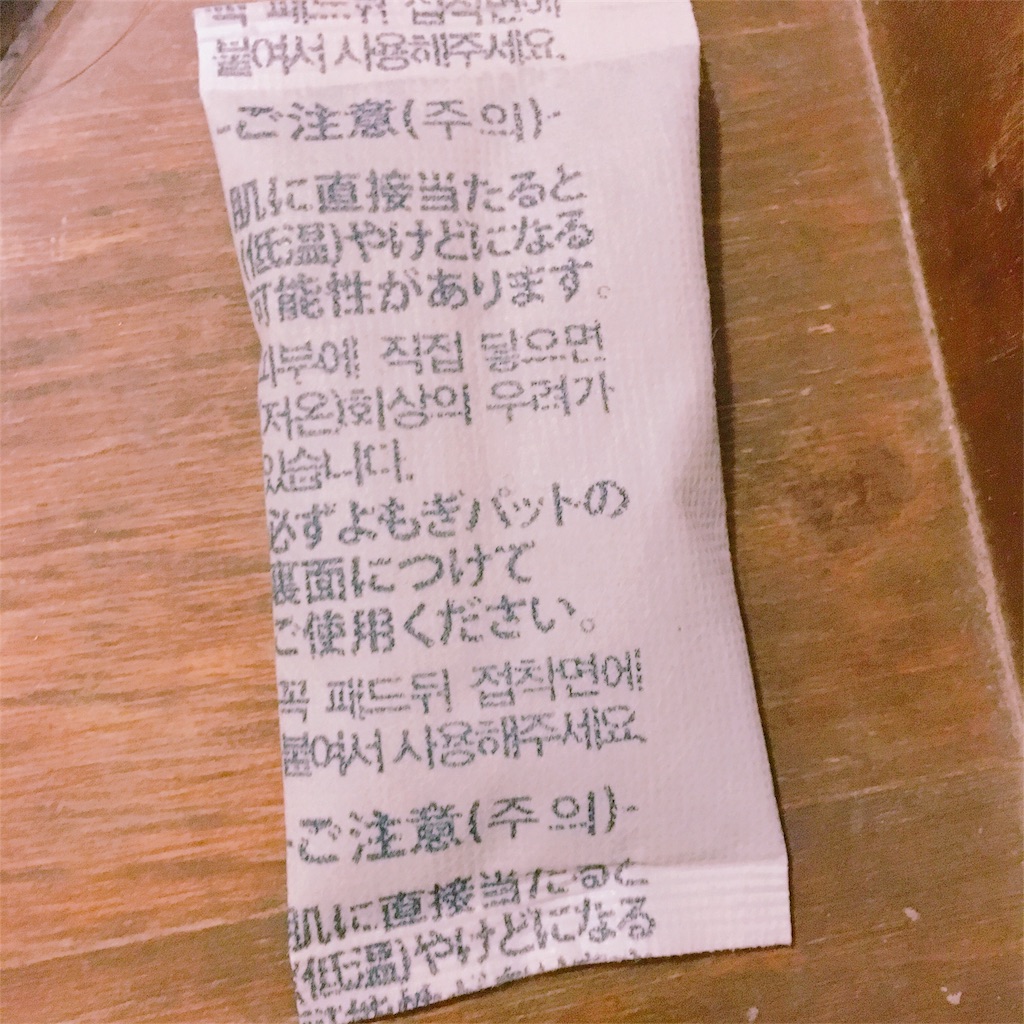 꼭 패드뒤 접착면에
붙여서 사용해주세요.
-ご注意(주의)-
肌に直接当たると
(低温)やけどになる
可能性があります。
피부에 직접 닿으면
(저온)화상의 우려가
있습니다.
必ずよもぎパットの
裏面につけて
ご使用ください。
꼭 패드뒤 접착면에
붙여서 사용해주세요.
-ご注意(주의)-
肌に直接当たると
(低温)やけどになる